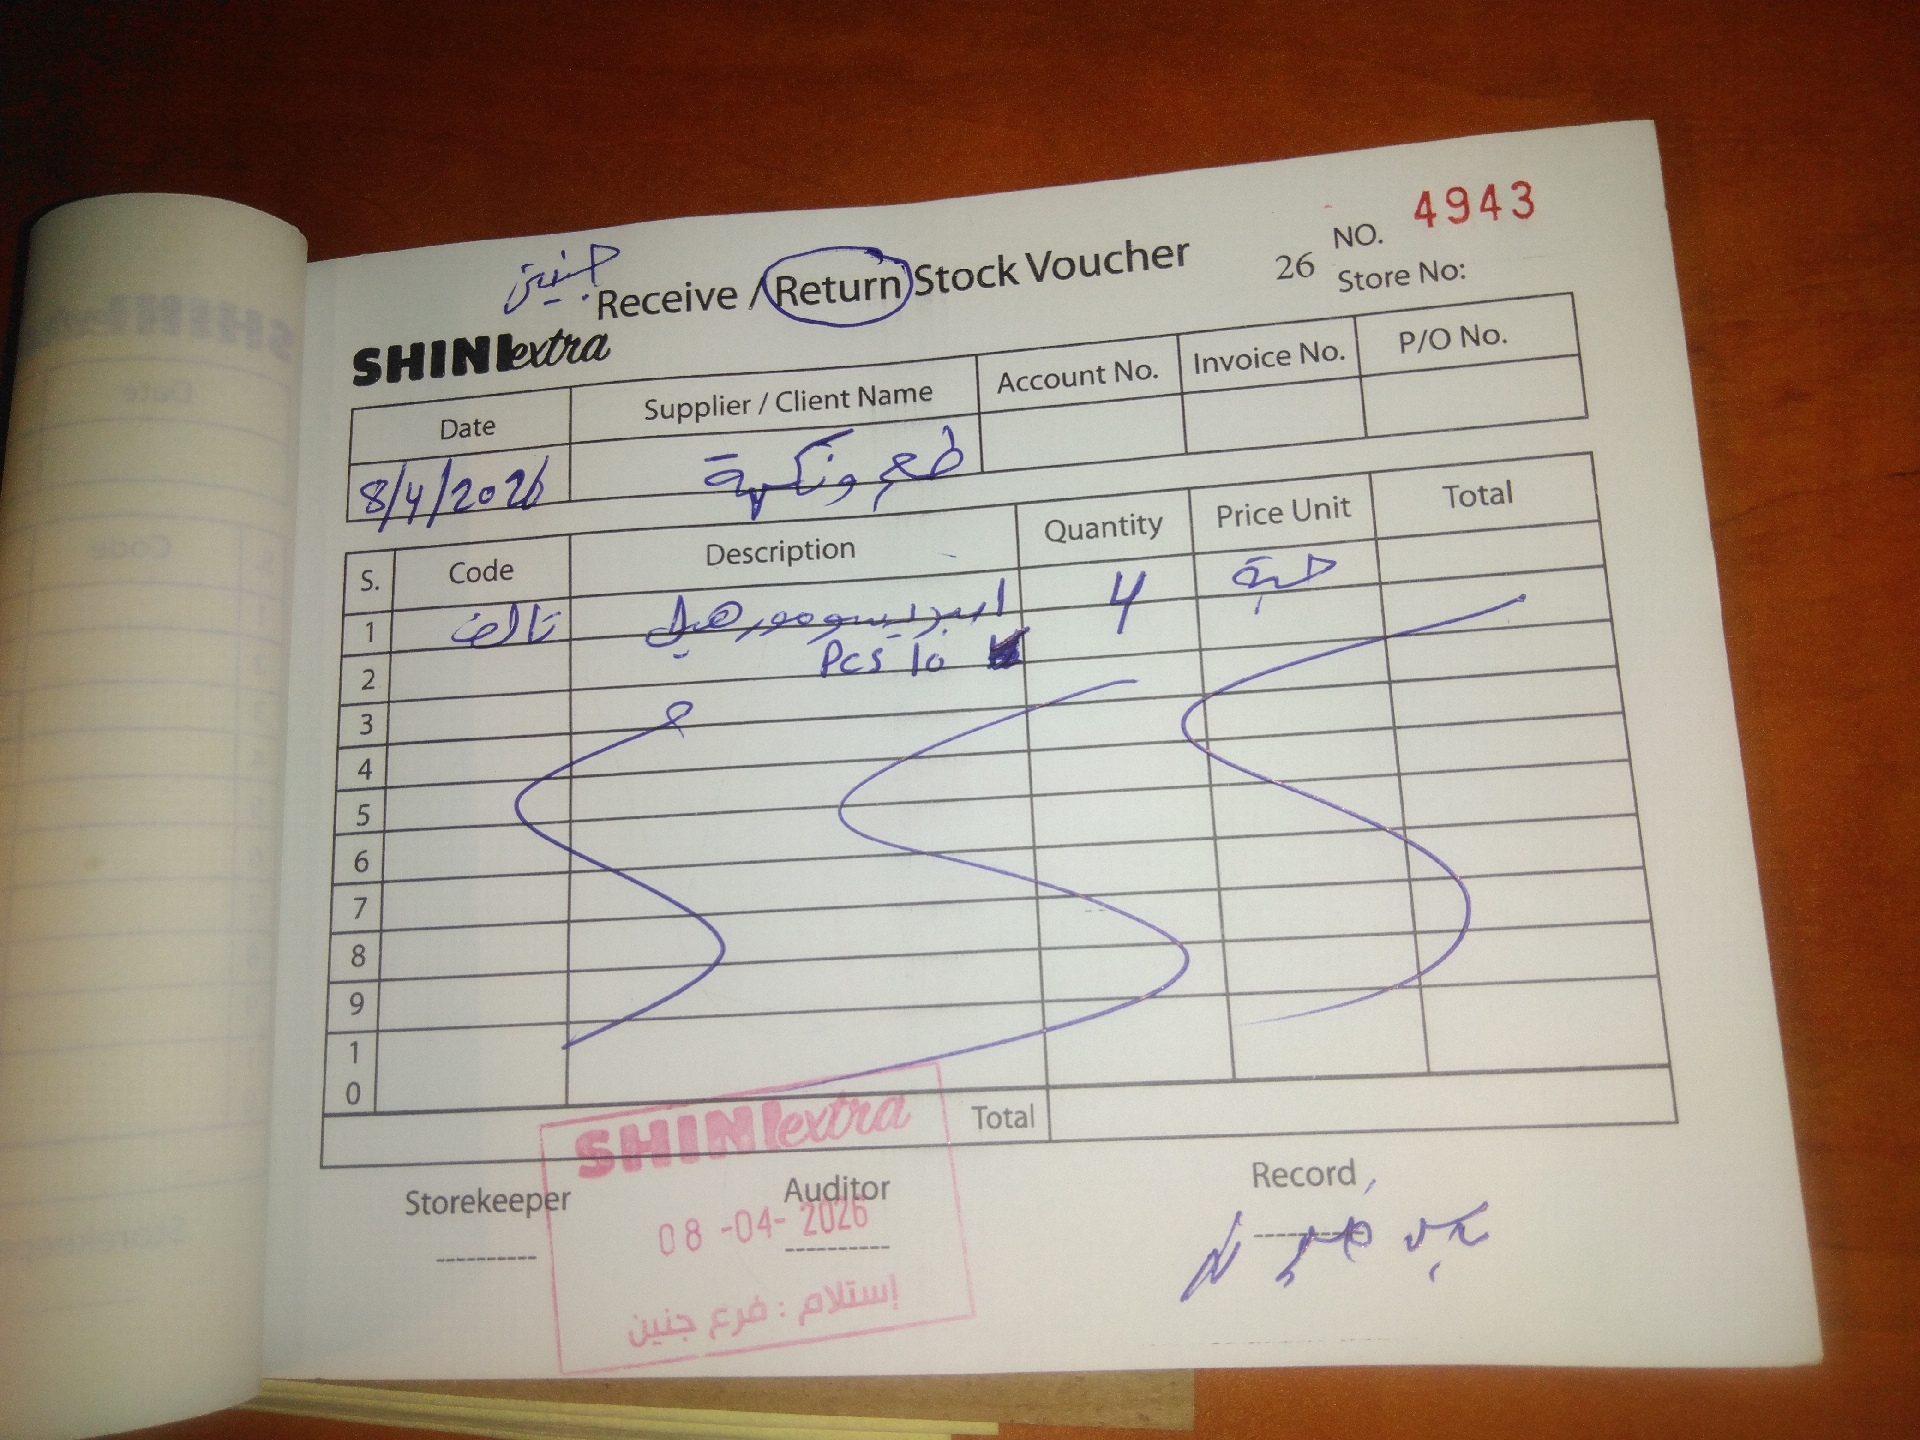 جنين
Receive / Return Stock Voucher
NO. 4943
26 Store No:
SHINI extra
Date Supplier / Client Name Account No. Invoice No. P/O No.
8/4/2026 طعم ونكهة
S. Code Description Quantity Price Unit Total
1 تالف 4 حبة
2 Pcs 10
3
4
5
6
7
8
9
10
Total
Storekeeper Auditor Record
SHINI extra
08 -04- 2026
إستلام : فرع جنين